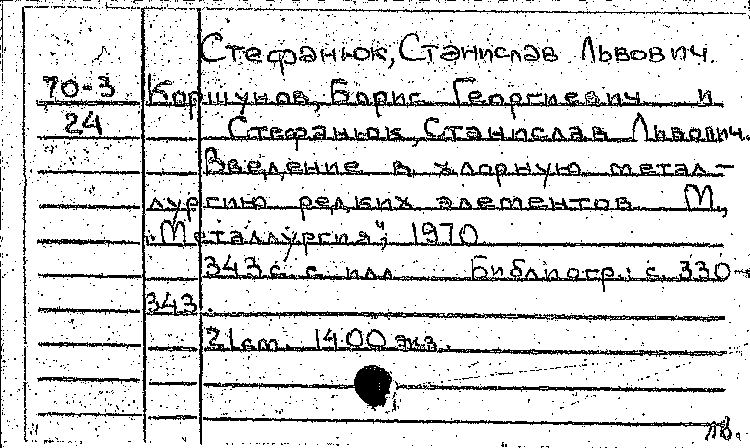 Стефанюк, Станислав Львович.
70-3 Коршунов, Борис Георгиевич и
24 Стефанюк, Станислав Львович.
Введение в хлорную метал-
лургию редких элементов М.,
"Металлургия", 1970
343 с. с илл Библиогр.: с. 330-
343.
21 см. 1400 экз.